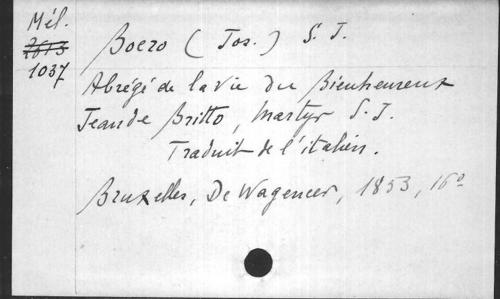 Mél.
2613
1037
Boero (Jos.) S. J.
Abrégé de la vie du Bienheureux
Jean de Britto, martyr S. J.
Traduit de l'italien.
Bruxelles, De Wageneer, 1853, 16º